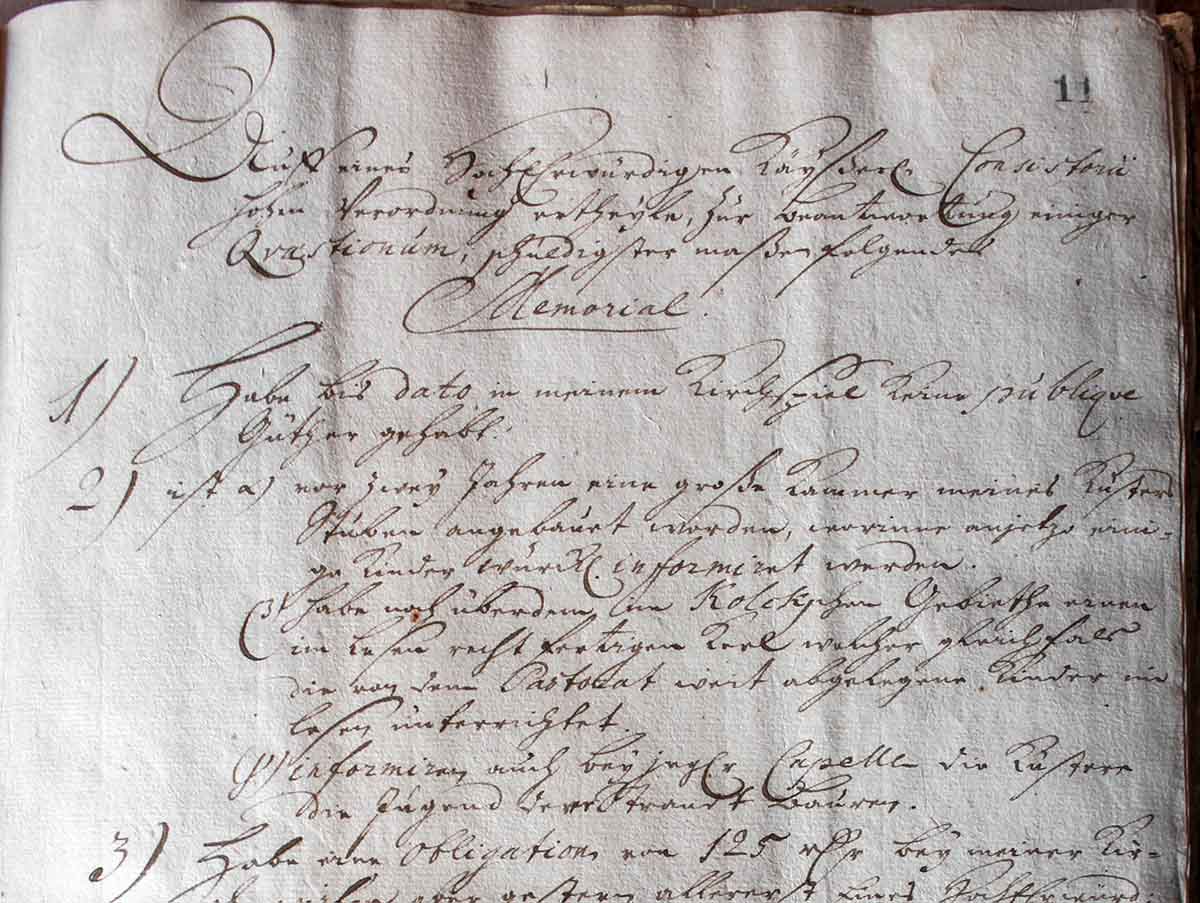 11
Auff eines HochEhrwürdigen Kayserl. Consistorii
hohen Verordnung ertheyle, zur beantwortung einiger
Qvæstionum, schuldigster maßen folgendes
Memorial.
1) Habe bis dato in meinem Kirchspiel keine publiqve
Güther gehabt.
2) ist α) vor zwey Jahren eine große Kammer meines Küsters
Stuben angebauet worden, worinne anjetzo eini-
ge Kinder würckl. informiret werden.
β) habe noch überdem im Kolckschen Gebiethe einen
im Lesen recht fertigen Kerl welcher gleichfals
die von dem Pastorat weit abgelegene Kinder im
lesen unterrichtet.
γ) informiren auch bey Capelle die Küsters
die Jugend der Strandt Bauren.
3) Habe eine Obligation von 125 rthr bey meiner Kir-
aber gestern allererst eines HochEhrwürd-